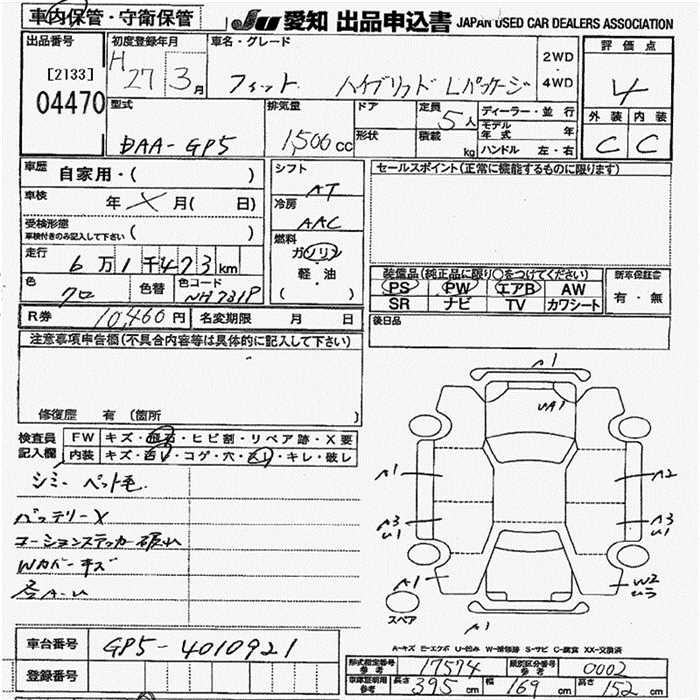 車内保管・守衛保管
JU 愛知 出品申込書 JAPAN USED CAR DEALERS ASSOCIATION
出品番号
[2133]
04470
初度登録年月
H 27 3月
車名・グレード
フィット ハイブリッド Lパッケージ
2WD
4WD
評価点
4
外装 内装
C C
型式
DAA-GP5
排気量
1,500cc
ドア
形状
定員 5人
積載 kg
ディーラー・並行
モデル年式 年
ハンドル 左・右
車歴 自家用・( )
車検 年 X 月( 日)
受検形態
車検付きのみ記入して下さい ( )
走行 6万1千473km
色 クロ 色替 色コード NH731P
シフト AT
冷房 AAC
燃料
ガソリン
軽・油
( )
セールスポイント(正常に機能するものに限ります)
装備品(純正品に限り○をつけてください)
PS PW エアB AW
SR ナビ TV カワシート
新車保証書
有・無
後日品
R券 10,460円 名変期限 月 日
注意事項申告欄(不具合内容等は具体的に記入して下さい)
修復歴 有 (箇所 )
検査員記入欄
FW キズ・飛石・ヒビ割・リペア跡・X要
内装 キズ・凹・コゲ・穴・スレ・キレ・破レ
シミ ペット毛
バッテリーX
コーションステッカー破れ
Wカバーキズ
各A-U
A1
UA1
A1
A2
A3
U1
A3
U1
A1
W2
スペア
A1
A-キズ E-エクボ U-凹み W-補修跡 S-サビ C-腐食 XX-交換済
車台番号 GP5-4010921
登録番号
形式指定番号 参考 17574 類別区分番号 参考 0002
車庫証明用 参考 長さ 395cm 幅 169cm 高さ 152cm